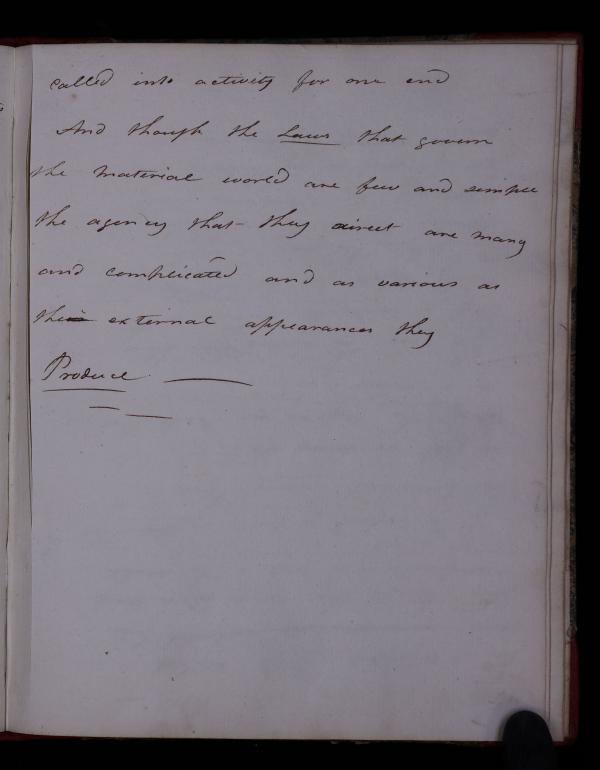 called into activity for one end
And though the Laws that govern
the material world are few and simple
the agency that they direct are many
and complicated and as various as
their external appearances they
Produce.